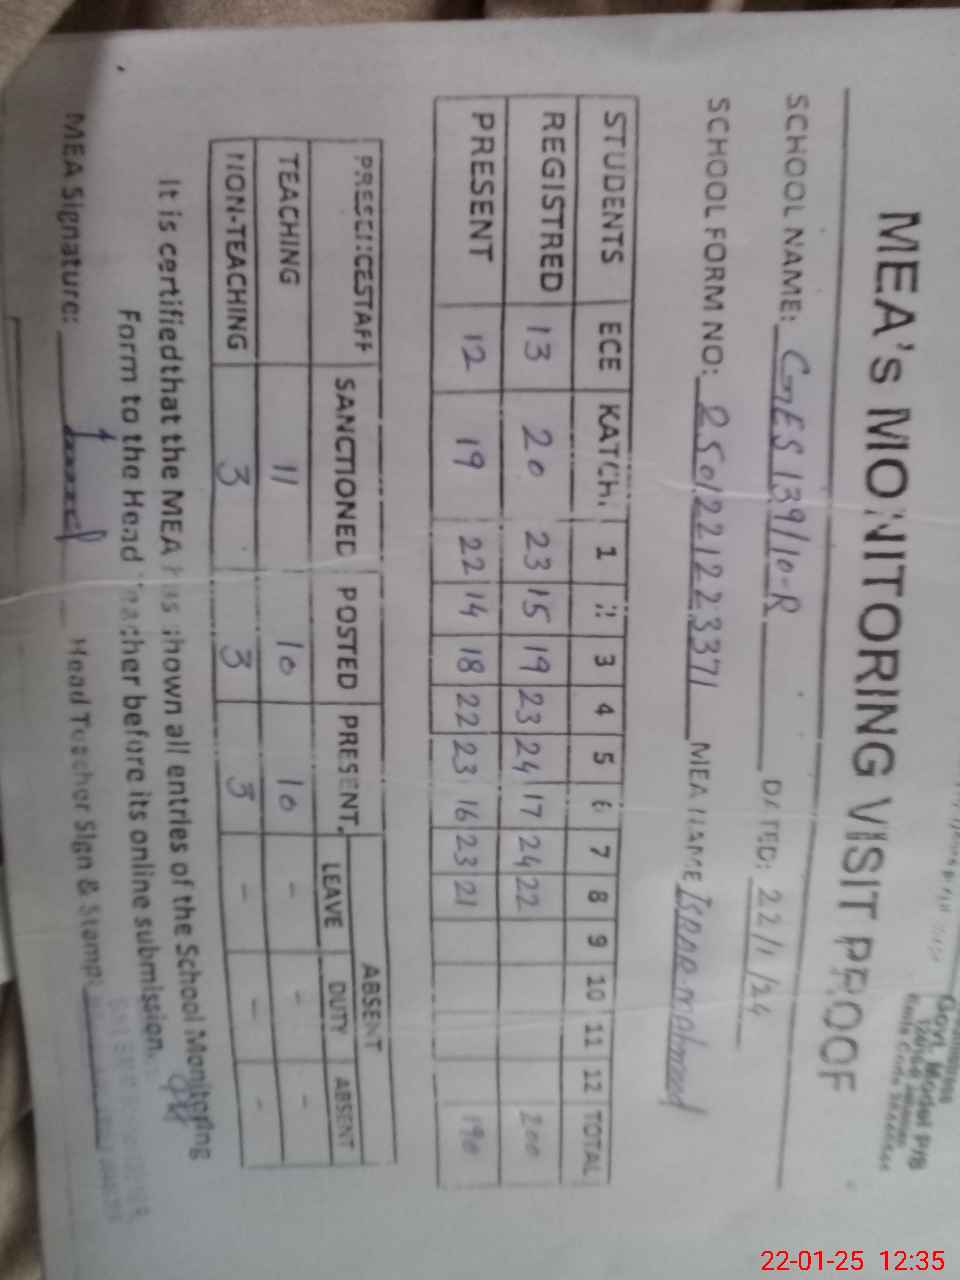 Govt. Model P/B
MEA'S MONITORING VISIT PROOF
SCHOOL NAME: GES 139/10-R DATED: 22/1/24
SCHOOL FORM NO: 250122122 3371 MEA NAME ISRAR Mahmood
STUDENTS ECE KATCHI 1 2 3 4 5 6 7 8 9 10 11 12 TOTAL
REGISTRED 13 20 23 15 19 23 24 17 24 22 200
PRESENT 12 19 22 14 18 22 23 16 23 21 190
PRESENCE STAFF SANCTIONED POSTED PRESENT ABSENT
LEAVE DUTY ABSENT
TEACHING 11 10 10 - - -
NON-TEACHING 3 3 3 - - -
It is certified that the MEA has shown all entries of the School Monitoring
Form to the Head Teacher before its online submission.
MEA Signature: Head Teacher Sign & Stamp:
22-01-25 12:35